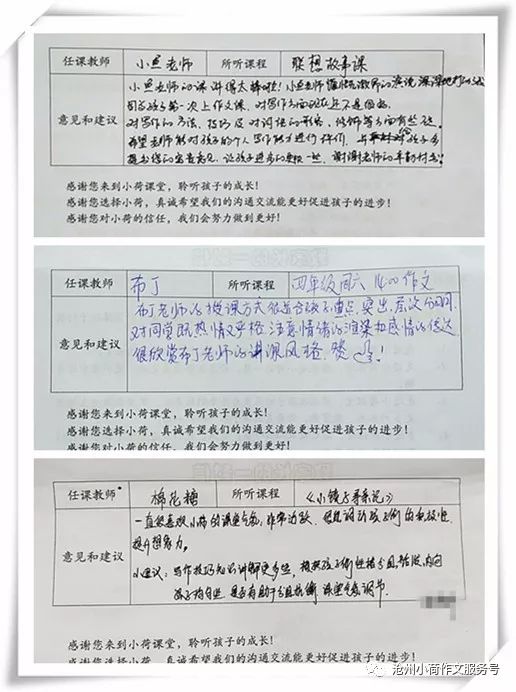 任课教师 小鱼老师 所听课程 联想故事课
意见和建议
小鱼老师的课讲得太棒啦！小鱼老师 激昂的演说深深地打动
孩子第一次上作文课，对写作方面现在还不
对写作的方法、技巧及对词语的形容、修饰等方面有些欠
希望老师能对孩子的个人写作能力进行评价，给孩子多
提出您的宝贵意见，让孩子进步的更快一些，谢谢老师的辛勤付出！
感谢您来到小荷课堂，聆听孩子的成长！
感谢您选择小荷，真诚希望我们的沟通交流能更好促进孩子的进步！
感谢您对小荷的信任，我们会努力做到更好！
任课教师 布丁 所听课程 四年级周六 作文
意见和建议
布丁老师的授课方式很适合孩子，重点突出，层次分明，
对同学既热情又严格，注意情绪的渲染和感情的传达
很欣赏布丁老师的讲课风格，赞 ！
感谢您来到小荷课堂，聆听孩子的成长！
感谢您选择小荷，真诚希望我们的沟通交流能更好促进孩子的进步！
感谢您对小荷的信任，我们会努力做到更好！
任课教师 棉花糖 所听课程 《小镜子寻亲记》
意见和建议
一直很喜欢小荷的课堂气氛，非常活跃，很能调动孩子们的积极性，
提升想象力。
小建议：写作技巧知识讲解更多些，根据孩子们性格分组，活泼、内向
孩子均匀些，是否有助于分组均衡，课堂气氛调节。
感谢您来到小荷课堂，聆听孩子的成长！
感谢您选择小荷，真诚希望我们的沟通交流能更好促进孩子的进步！
感谢您对小荷的信任，我们会努力做到更好！
沧州小荷作文服务号